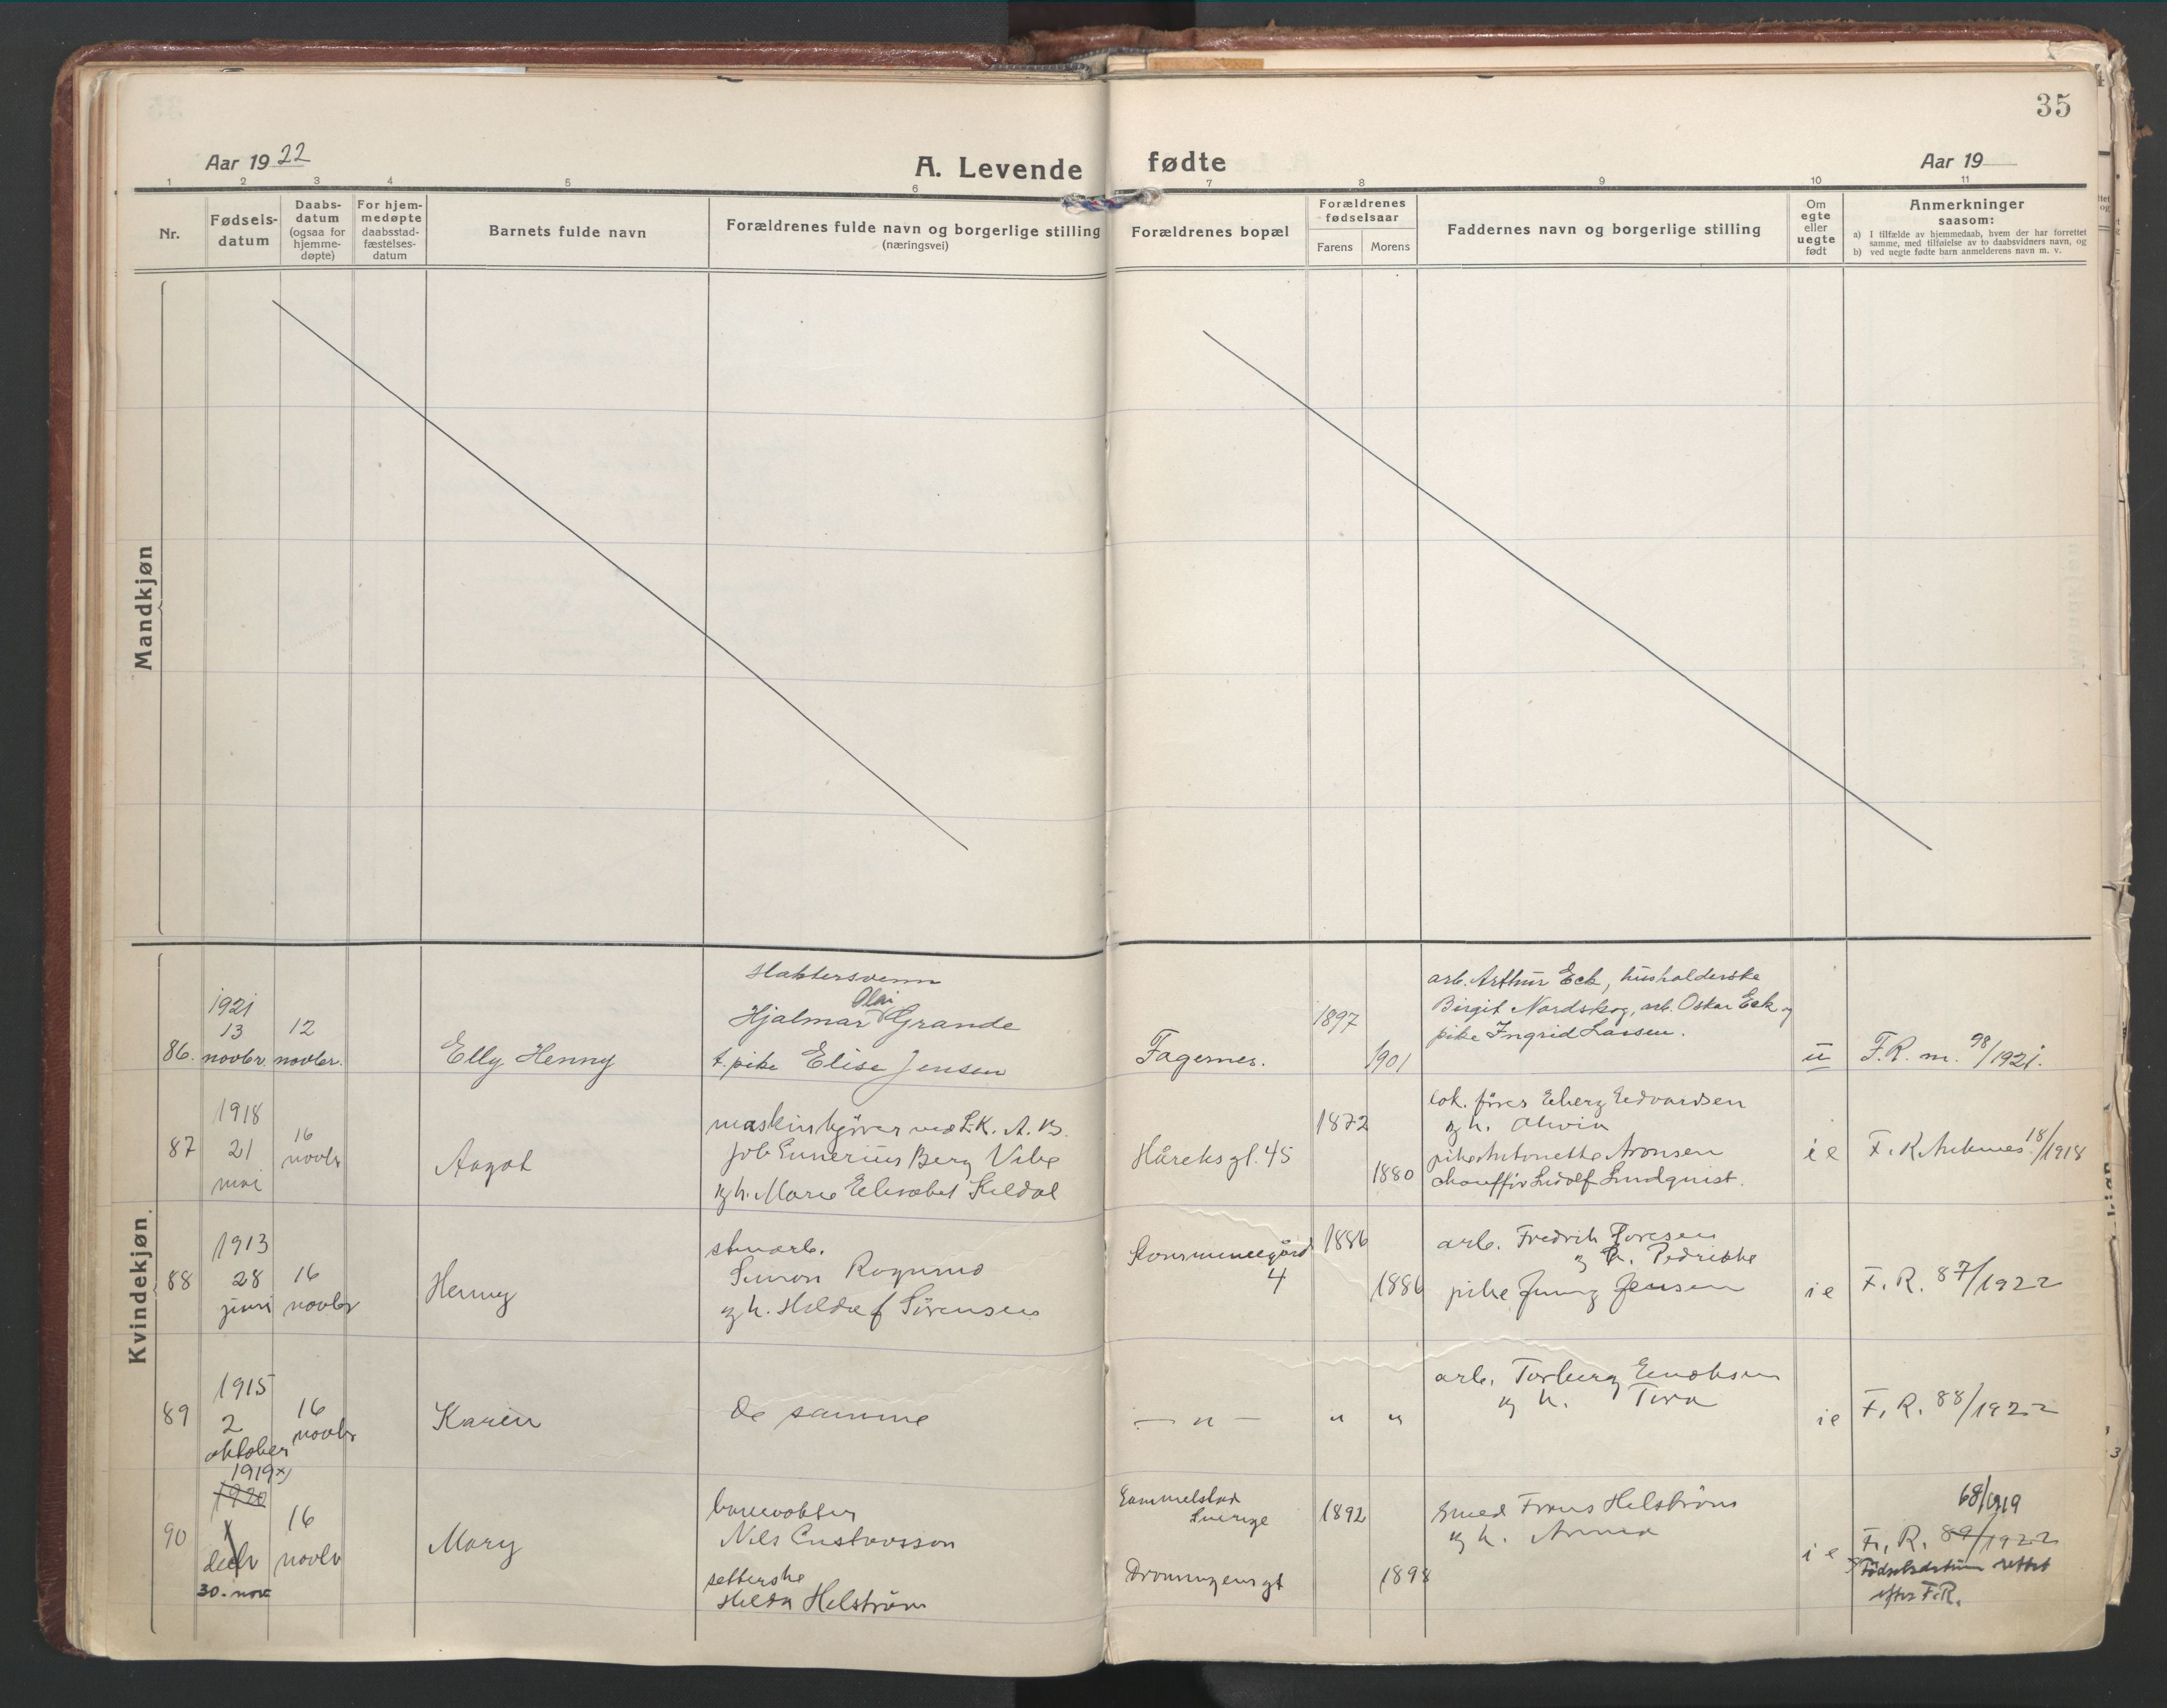 35
Aar 1922
A. Levende fødte
Aar 19
1 2 3 4 5 6 7 8 9 10 11
Nr.
Fødsels-
datum
Daabs-
datum
(ogsaa for
hjemme-
døpte)
For hjem-
medøpte
daabsstad-
fæstelses-
datum
Barnets fulde navn
Forældrenes fulde navn og borgerlige stilling
(næringsvei)
Forældrenes bopæl
Forældrenes
fødselsaar
Farens
Morens
Faddernes navn og borgerlige stilling
Om
egte
eller
uegte
født
Anmerkninger
saasom:
a) I tilfælde av hjemmedaab, hvem der har forrettet
samme, med tilføielse av to daabsvidners navn, og
b) ved uegte fødte barn anmelderens navn m. v.
Mandkjøn
Kvindekjøn
86.
1921
13
novbr.
12
novbr.
Elly Henny
slaktersvenn
Olai
Hjalmar Grande
t. pike Elise Jensen
Fagernes.
1897
1901
arb. Arthur Eck, husholderske
Birgit Nordskog, arb. Oskar Eck og
pike Ingrid Larsen.
u
F.R. m. 98/1921.
87
1918
21
mai
16
novbr
Aagot
maskinkjører ved L.K. A.B.
Berg Vibe
og h. Marie Elisabet Kildal
Håreksgt. 45
1872
1880
lok. fører Edvardsen
og h. Alvin
pike Antonette Aronsen
chauffør Ludolf Lindquist.
i e
F. R. Ankenes 18/1918
88
1913
28
juni
16
novbr
Henny
stenarb.
Simon Rognmo
og h. Hilda f Sørensen
Kommunegård
4
1886
1886
arb. Fredrik
og h. Pedrikke
pike Jenny Jensen
i e
F. R. 87/1922
89
1915
2
oktober
16
novbr
Karen
de samme
— " —
"
"
arb. Torberg Enoksen
og h. Tora
i e
F. R. 88/1922
90
1919 x)
1920
decbr
30. nov.
16
novbr
Mary
banevokter
Nils Gustavsson
setterske
Hilda Helstrøm
Gammelstad
Sverige
Dronningensgt
1892
1898
smed Frans Helstrøm
og h. Anna
i e
68/1919
F. R. 89/1922
x) Fødselsdatum rettet
efter F.R.